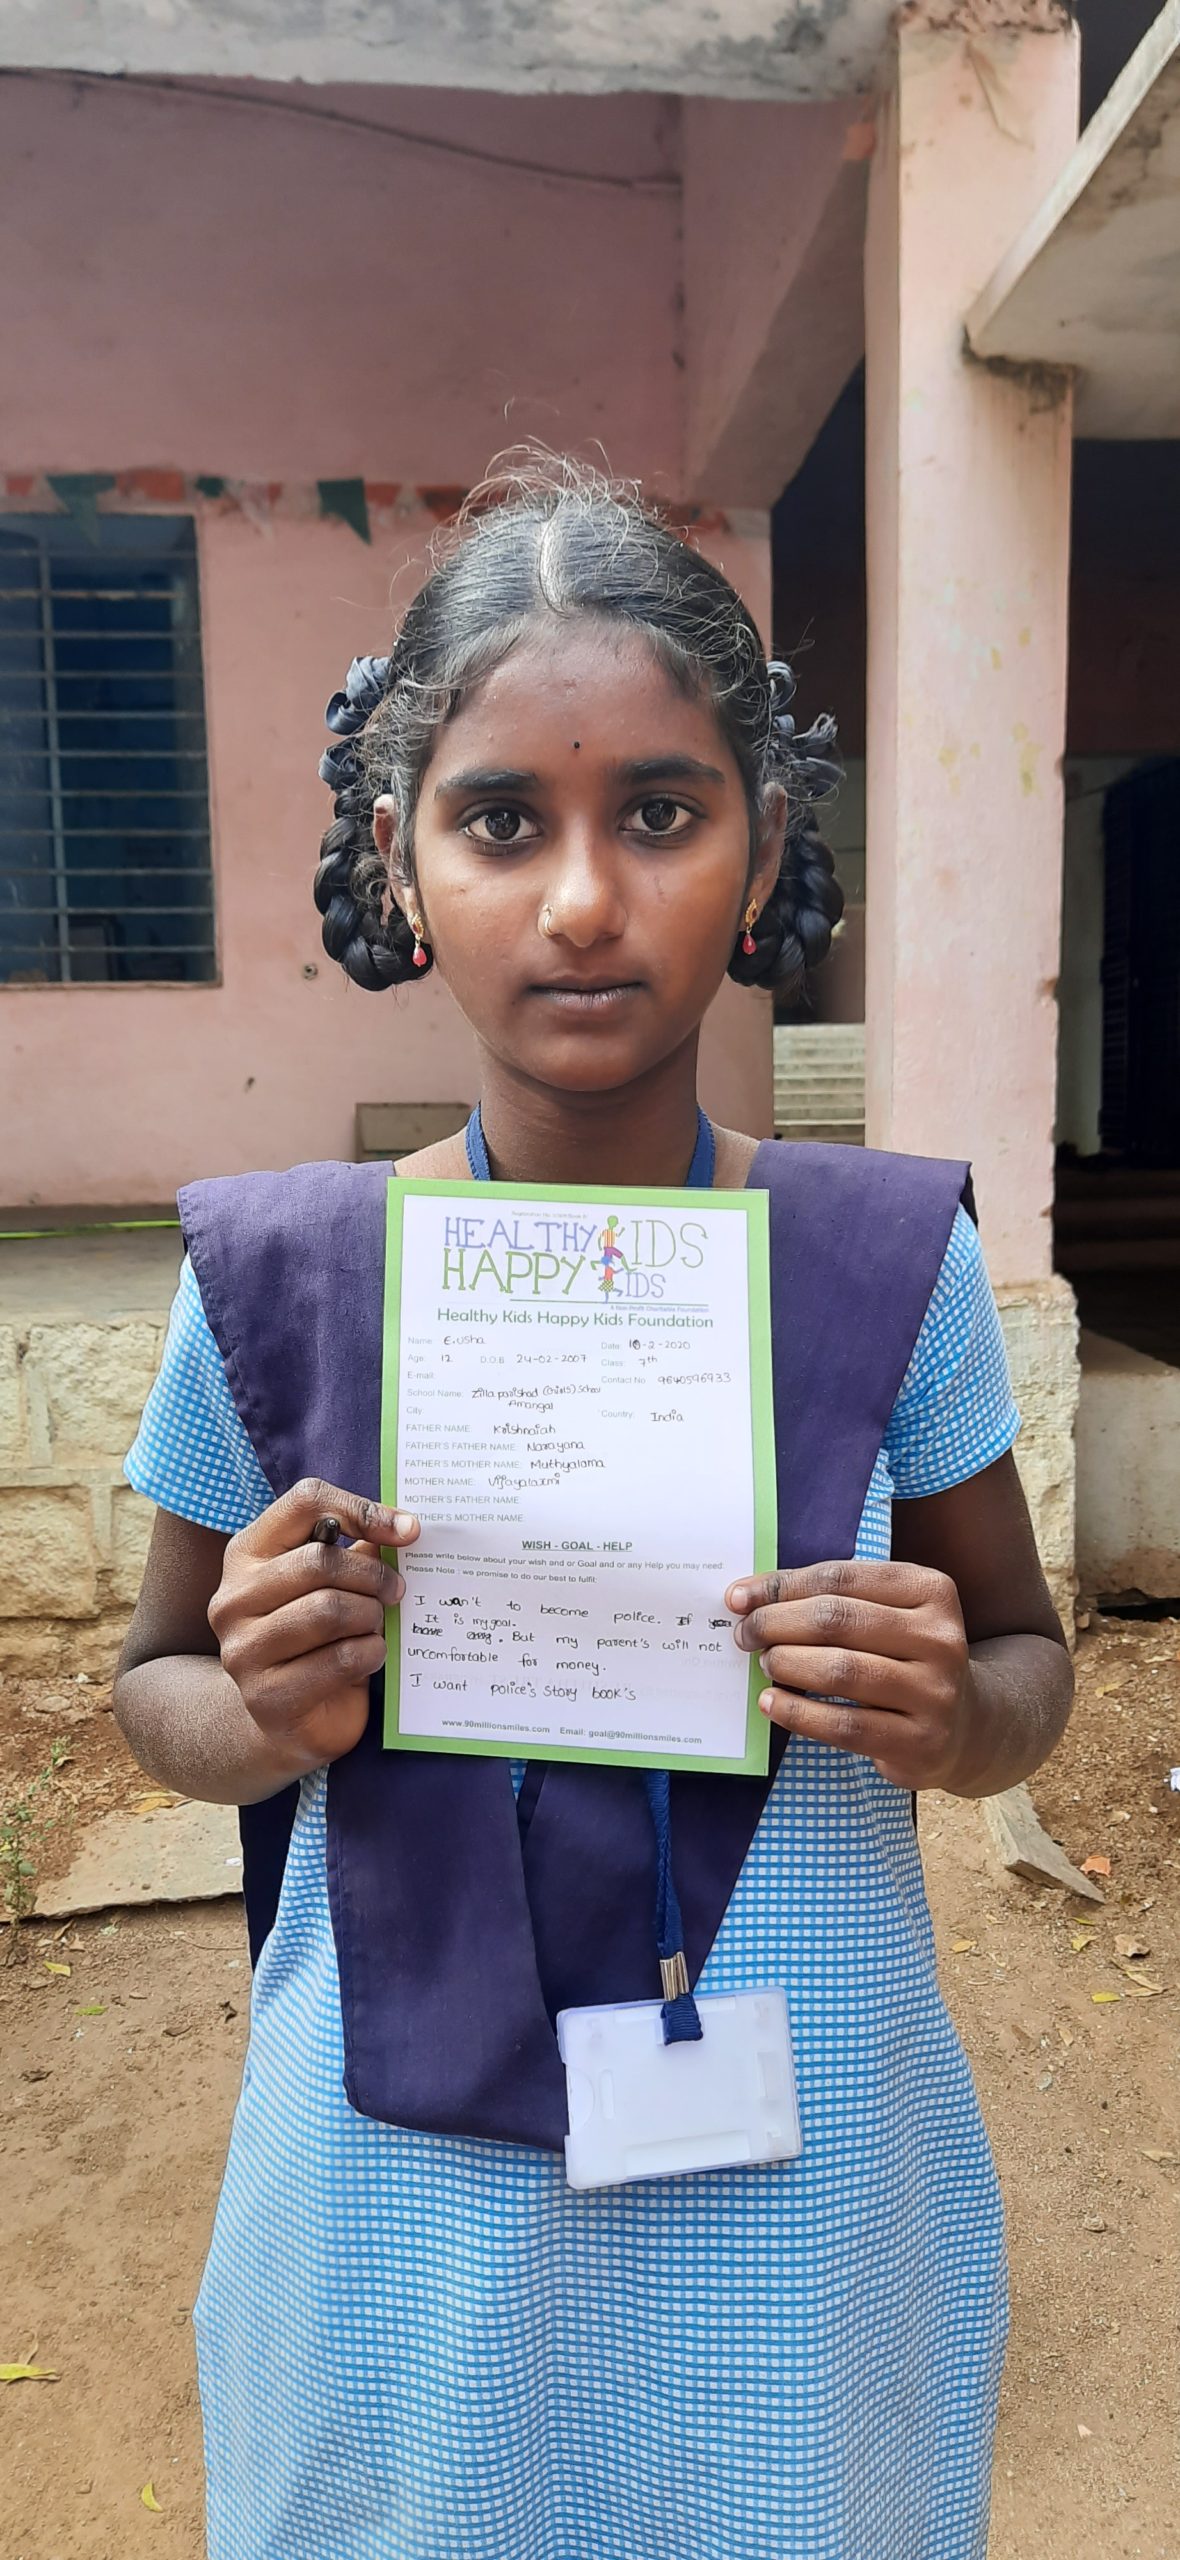 HEALTHY KIDS
HAPPY KIDS
A Non Profit Charitable Foundation
Healthy Kids Happy Kids Foundation
Name: E.Usha
Date: 10-2-2020
Age: 12 D.O.B 24-02-2007 Class: 7th
E-mail: Contact No 9640596933
School Name: Zilla parishad (Girls) School
Amangal
City: Country: India
FATHER NAME: Krishnaiah
FATHER'S FATHER NAME: Narayana
FATHER'S MOTHER NAME: Muthyalama
MOTHER NAME: Vijayalaxmi
MOTHER'S FATHER NAME:
OTHER'S MOTHER NAME:
WISH - GOAL - HELP
Please write below about your wish and or Goal and or any Help you may need.
Please Note : we promise to do our best to fulfil:
I wan't to become police. If you
It is my goal.
have any. But my parent's will not
uncomfortable for money.
I want police's story book's
www.90millionsmiles.com Email: goal@90millionsmiles.com